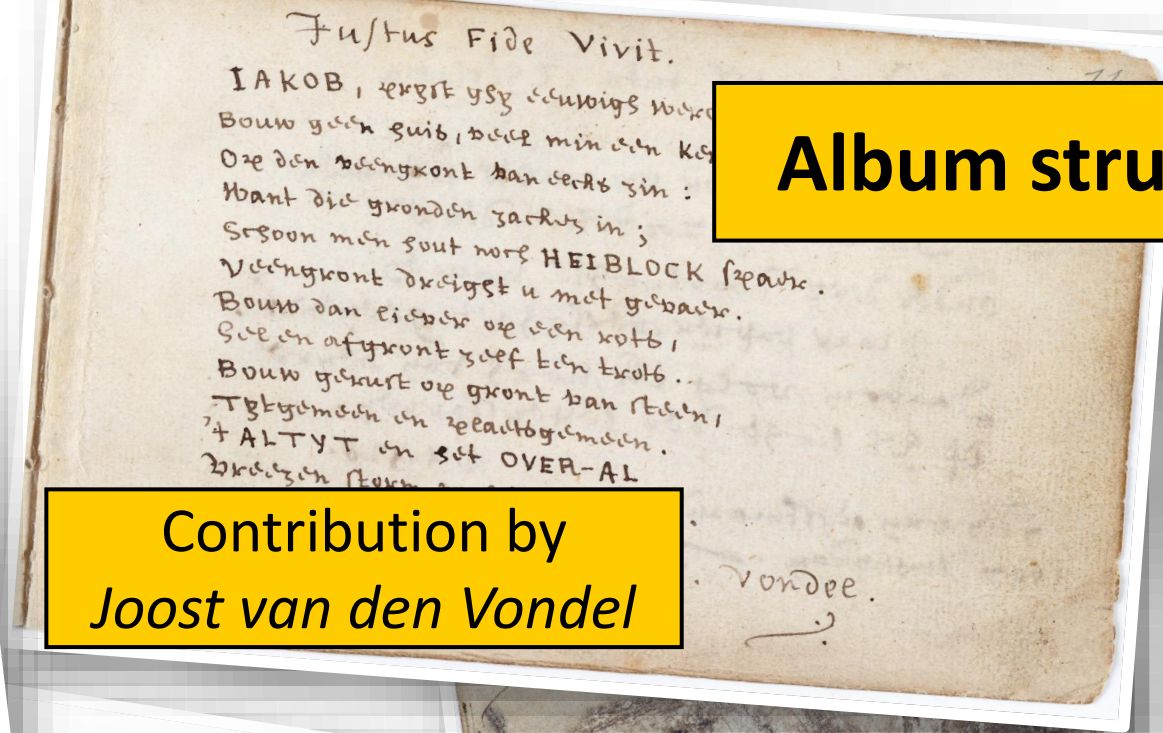 Justus Fide Vivit.
11
IAKOB, erft ghy eeuwigh
Bouw geen huis, veel min een
Op den veengront van eechs zin:
Want die gronden zacken in;
Schoon men hout noch HEIBLOCK spaer.
Veengront dreight u met gevaer.
Bouw dan liever op een rots,
Hel en afgront zelf ten trots.
Bouw gerust op gront van steen,
Tytgemeen en plaetsgemeen.
't ALTYT en het OVER-AL
Vreezen storm
Vondel.
Album stru
Contribution by
Joost van den Vondel